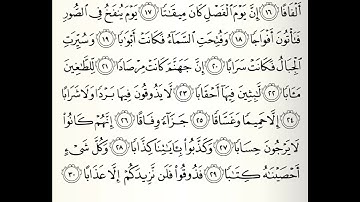 أَلْفَافًا ﴿١٦﴾ إِنَّ يَوْمَ ٱلْفَصْلِ كَانَ مِيقَٰتًا ﴿١٧﴾ يَوْمَ يُنفَخُ فِى ٱلصُّورِ
فَتَأْتُونَ أَفْوَاجًا ﴿١٨﴾ وَفُتِحَتِ ٱلسَّمَآءُ فَكَانَتْ أَبْوَٰبًا ﴿١٩﴾ وَسُيِّرَتِ
ٱلْجِبَالُ فَكَانَتْ سَرَابًا ﴿٢٠﴾ إِنَّ جَهَنَّمَ كَانَتْ مِرْصَادًا ﴿٢١﴾ لِّلطَّٰغِينَ
مَـَٔابًا ﴿٢٢﴾ لَّٰبِثِينَ فِيهَآ أَحْقَابًا ﴿٢٣﴾ لَّا يَذُوقُونَ فِيهَا بَرْدًا وَلَا شَرَابًا
﴿٢٤﴾ إِلَّا حَمِيمًا وَغَسَّاقًا ﴿٢٥﴾ جَزَآءً وِفَاقًا ﴿٢٦﴾ إِنَّهُمْ كَانُوا۟
لَا يَرْجُونَ حِسَابًا ﴿٢٧﴾ وَكَذَّبُوا۟ بِـَٔايَٰتِنَا كِذَّابًا ﴿٢٨﴾ وَكُلَّ شَىْءٍ
أَحْصَيْنَٰهُ كِتَٰبًا ﴿٢٩﴾ فَذُوقُوا۟ فَلَن نَّزِيدَكُمْ إِلَّا عَذَابًا ﴿٣٠﴾